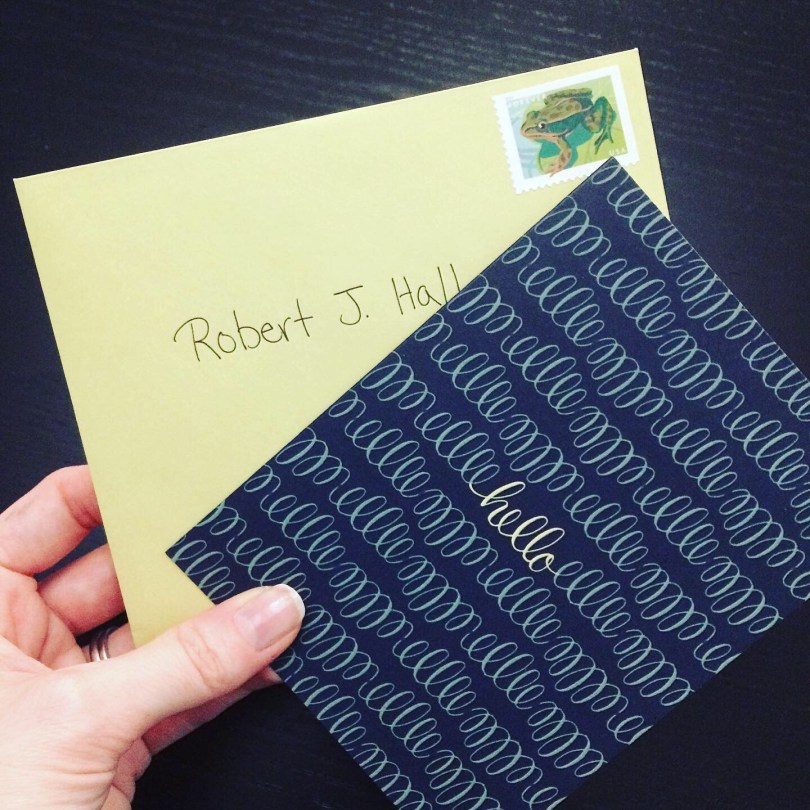 USA
Robert J. Hall
hello